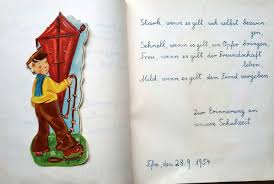 Stark, wenn es gilt, sich selbst bezwin
gen,
Schnell, wenn es gilt, ein Opfer bringen,
Treu, wenn es gilt der Freundschaft
leben,
Mild, wenn es gilt dem Feind vergeben.
Zur Erinnerung an
unsere Schulzeit
den 28.9.1954